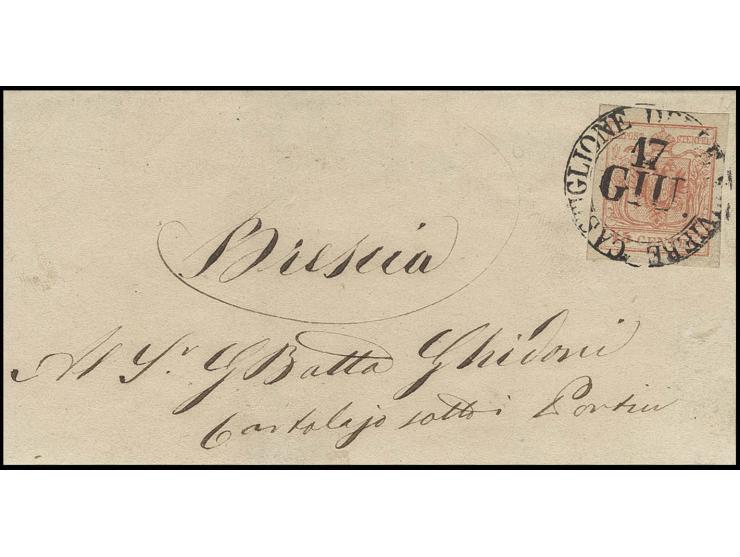 CASTIGLIONE DELLE STIVIERE
17
GIU.
STEMPEL
CENT
Brescia
Al Sr. GBatta Ghidoni
Cartolajo sotto i Portici